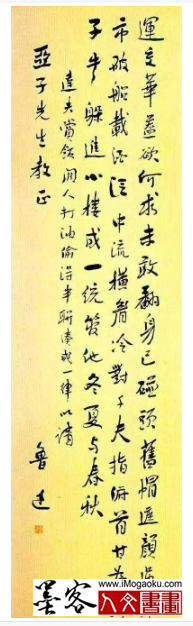 運交華蓋欲何求未敢翻身已碰頭舊帽遮顏過
市破船載酒泛中流橫眉冷對千夫指俯首甘為
子牛躲進小樓成一統管他冬夏與春秋
達夫賞飯閒人打油偷得半聯湊成一律以請
亞子先生教正
魯迅
www.iMogaoku.com
墨客
人文書画